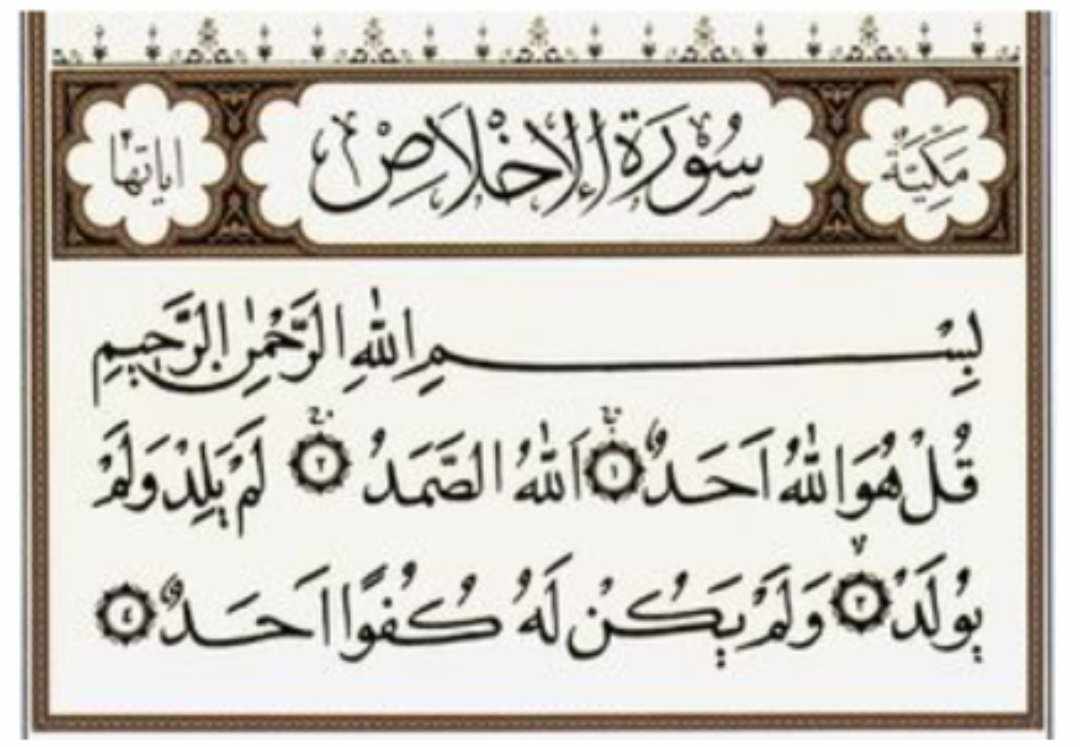 مَكِّيَّةٌ سُورَةُ الْإِخْلَاصِ اياتها ٤
بِسْمِ اللّٰهِ الرَّحْمٰنِ الرَّحِيمِ
قُلْ هُوَ اللّٰهُ اَحَدٌۚ ﴿١﴾ اَللّٰهُ الصَّمَدُۚ ﴿٢﴾ لَمْ يَلِدْ وَلَمْ
يُولَدْۙ ﴿٣﴾ وَلَمْ يَكُنْ لَهُ كُفُوًا اَحَدٌ ﴿٤﴾